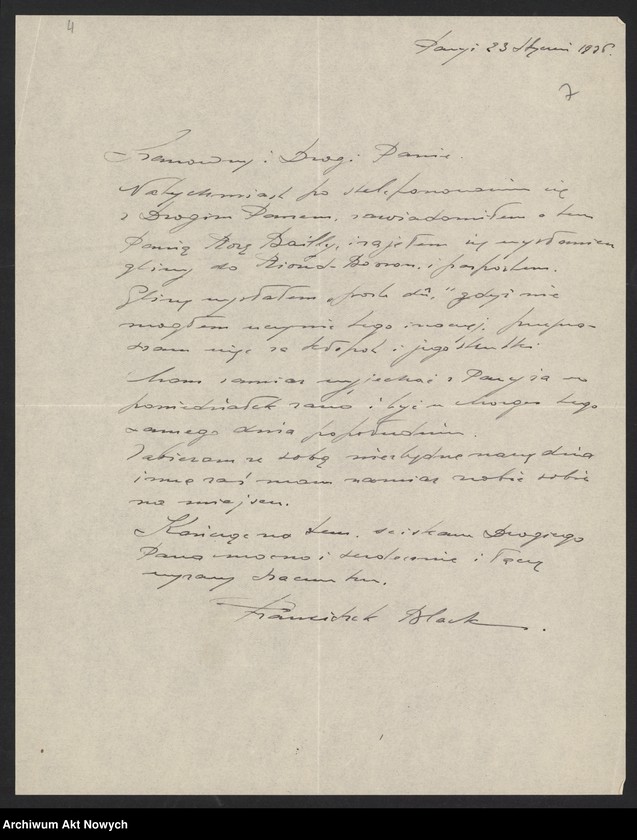 4
Paryż 23 Stycznia 193
7
Szanowny i Drogi Panie.
Natychmiast po stelefonowaniu się
z Drogim Panem, zawiadomiłem o tem
Panią Rozę Bailly, i zająłem się wysłaniem
gliny do Riond-Bosson, i
Glinę wysłałem, gdyż nie
mogłem uczynić tego inaczej, przepra-
szam więc za kłopot i jego skutki
Mam zamiar wyjechać z Paryża w
poniedziałek rano i być w Morges tego
samego dnia popołudniu.
Zabieram ze sobą niezbędne narzędzia
inne zaś mam zamiar zrobić sobie
na miejscu.
Kończąc na tem, ściskam Drogiego
Pana mocno i serdecznie i łączę
wyrazy szacunku.
Franciszek Black
Archiwum Akt Nowych